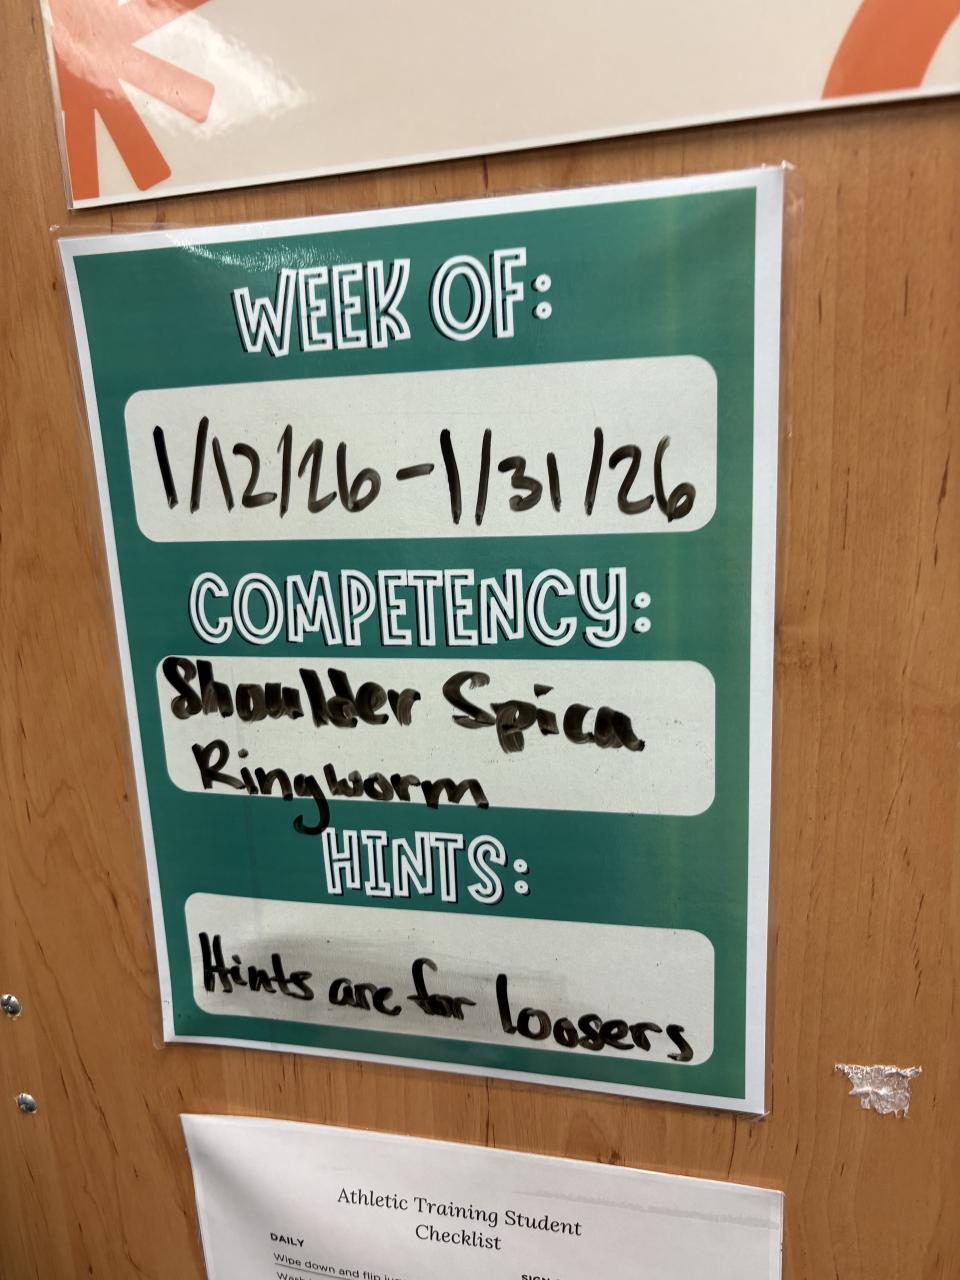 WEEK OF:
1/12/26 - 1/31/26
COMPETENCY:
Shoulder Spica
Ringworm
HINTS:
Hints are for loosers
Athletic Training Student
Checklist
DAILY
Wipe down and flip